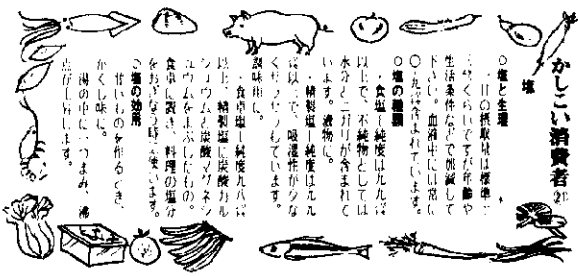 かしこい消費者
塩
○塩と生理
一日の摂取量は標準
くらいですが年齢や
生活条件などで加減して
下さい。血液中には常に
含まれています。
○塩の種類
・食塩―純度九九
以上で、不純物としては
水分とニガリが含まれて
います。漬物に。
・精製塩―純度は九九
以上で、吸湿性が少な
く
調味用に。
・食卓塩―純度九八
以上、精製塩に炭酸カル
シュウムと炭酸マグネシ
ュウムをまぶしたもの。
食卓に置き、料理の塩分
をおぎなう時に使います。
○塩の効用
甘いものを作るとき、
かくし味に。
湯の中に一つまみ、沸
点が上昇します。